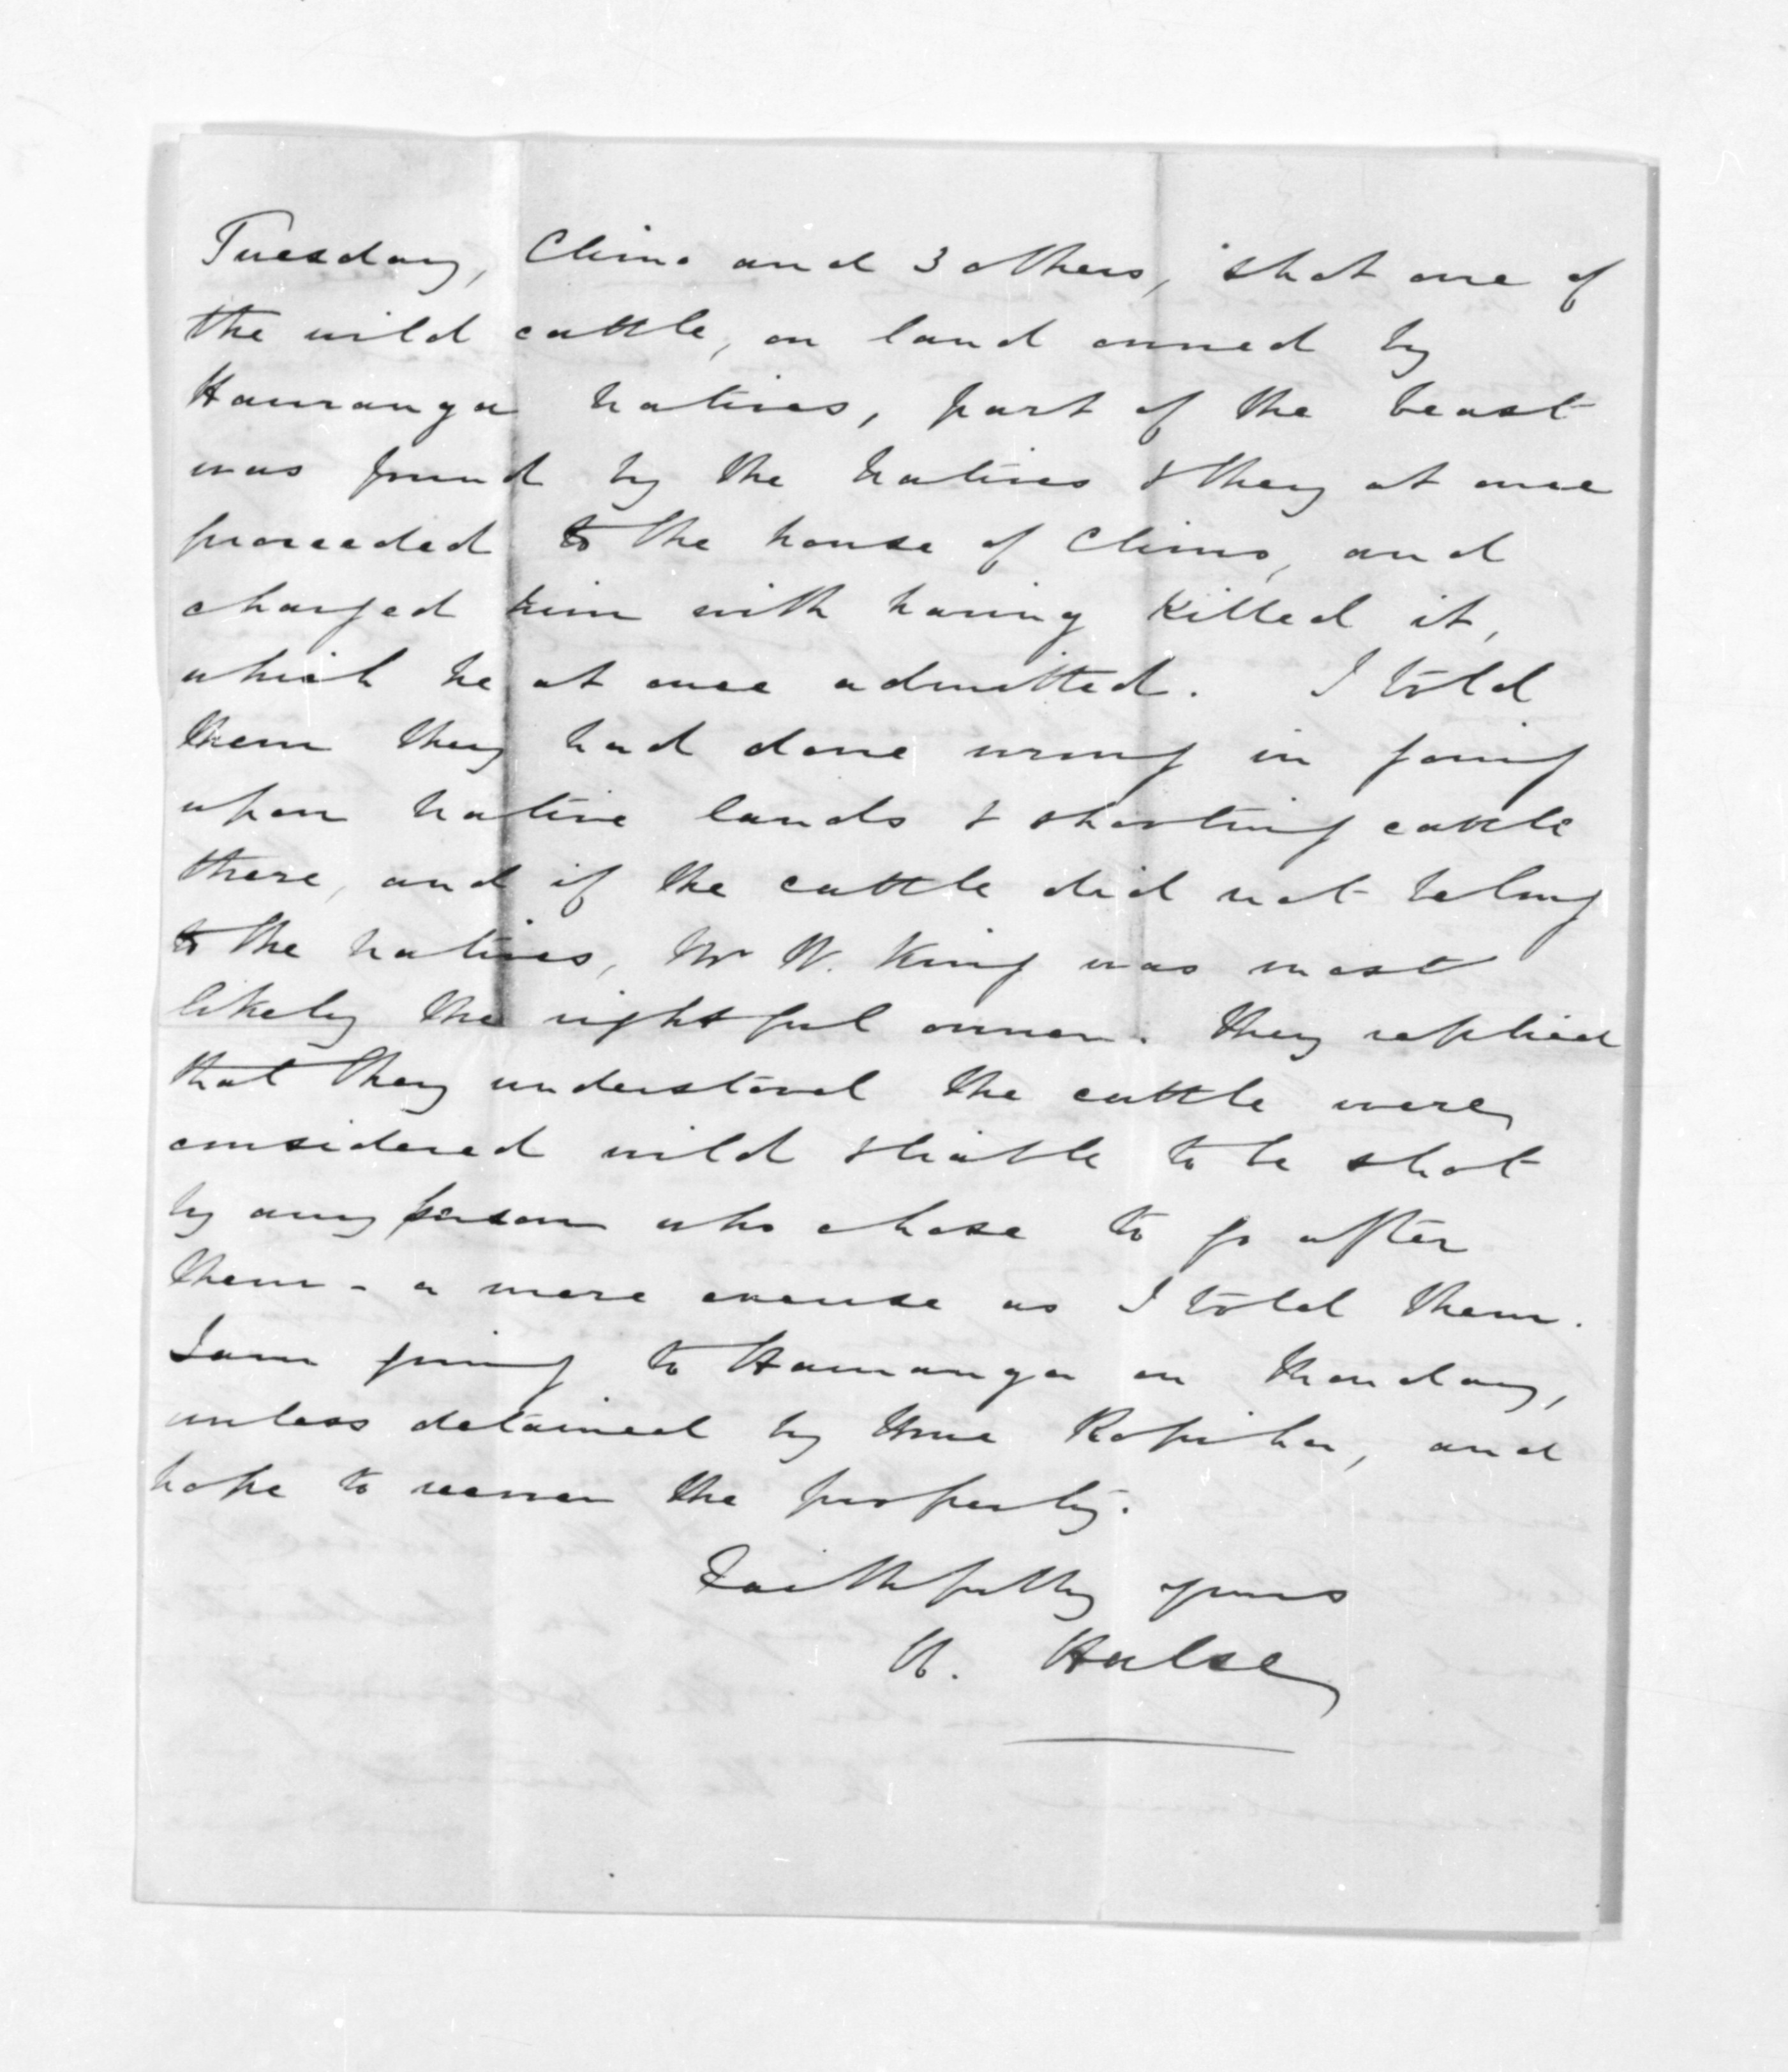 Tuesday, Climo and 3 others, shot one of
the wild cattle, on land owned by
Hauranga natives, part of the beast
was found by the natives & they at once
proceeded to the house of Climo, and
charged him with having killed it,
which he at once admitted. I told
them they had done wrong in going
upon native lands & shooting cattle
there, and if the cattle did not belong
to the natives, Mr W. King was most
likely the rightful owner. They replied
that they understood the cattle were
considered wild & liable to be shot
by any person who chose to go after
them - a mere excuse as I told them.
I am going to Hauranga on Monday,
unless detained by Hone Ropiha, and
hope to recover the property.
Faithfully yours
H. Halse